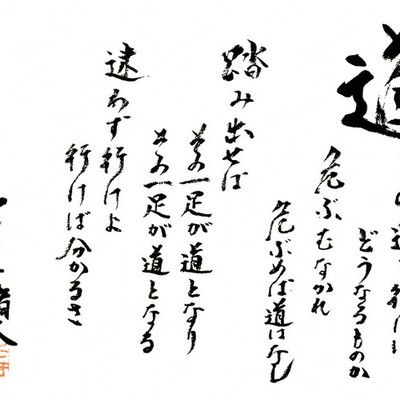 道
の道を行けば
どうなるものか
危ぶむなかれ
危ぶめば道はなし
踏み出せば
その一足が道となり
その一足が道となる
迷わず行けよ
行けば分かるさ